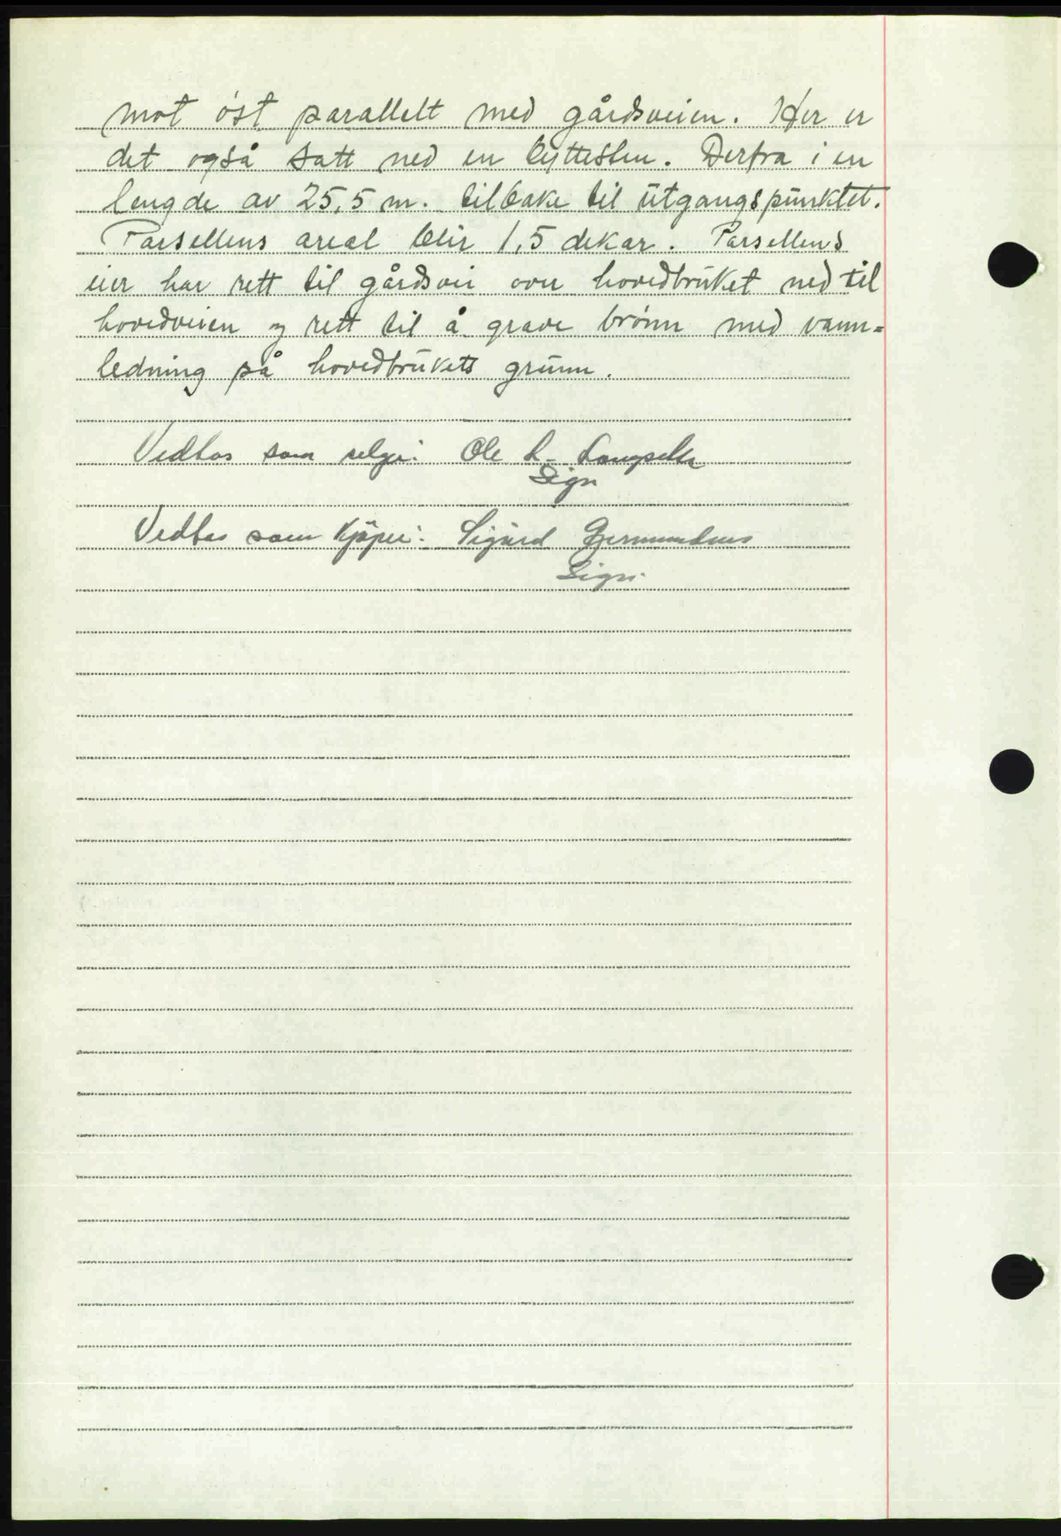 mot öst parallelt med gårdsveien. Her er
det også satt ned en byttesten. Derfra i en
lengde av 25,5 m. tilbake til utgangspunktet.
Parsellens areal blir 1,5 dekar. Parsellens
eier har rett til gårdsvei over hovedbruket ned til
hovedveien og rett til å grave brönn med vann=
ledning på hovedbrukets grunn.
Vedtas som selger: Ole L.
Sign
Vedtas som Kjöper: Sigurd Gjermundnes
Sign.